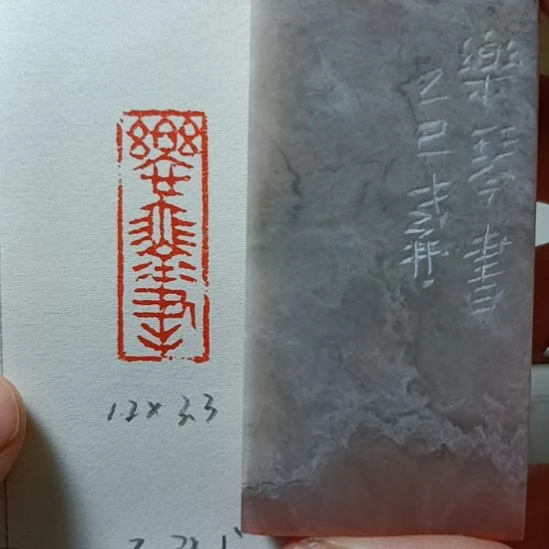 樂琴書
1.2 x 3.3
樂琴書
乙巳